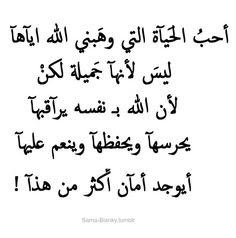 أحبُ الحَيآة التي وهَبني الله ايآهآ
ليسَ لأنهآ جَميلة لَكنْ
لأن الله بـ نفسه يرآقبهآ
يحرسهآ ويحفظهآ وينعم عليهآ
أيوجد أمآن أكثر من هذآ !
Sama-Blanky.tumblr